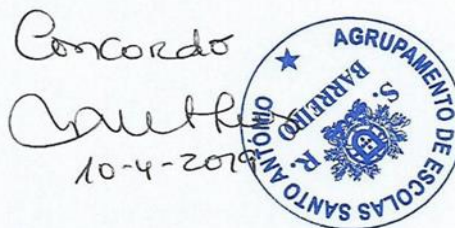 Concordo
10-4-2019
AGRUPAMENTO DE ESCOLAS SANTO ANTÓNIO
S. R.
BARREIRO